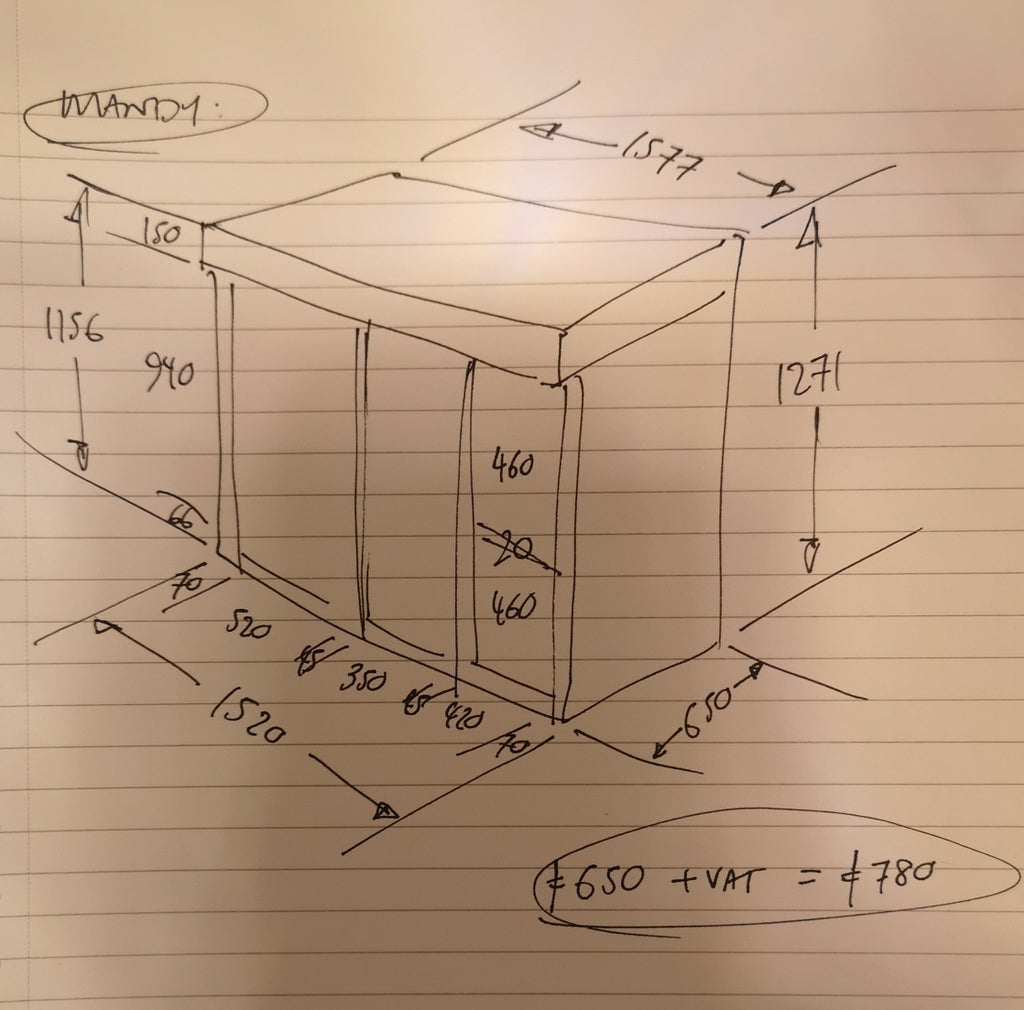 MANDY:
1577
150
1156
940
1271
460
66
20
70
460
520
45
350
45
420
1520
70
650
£650 + VAT = £780